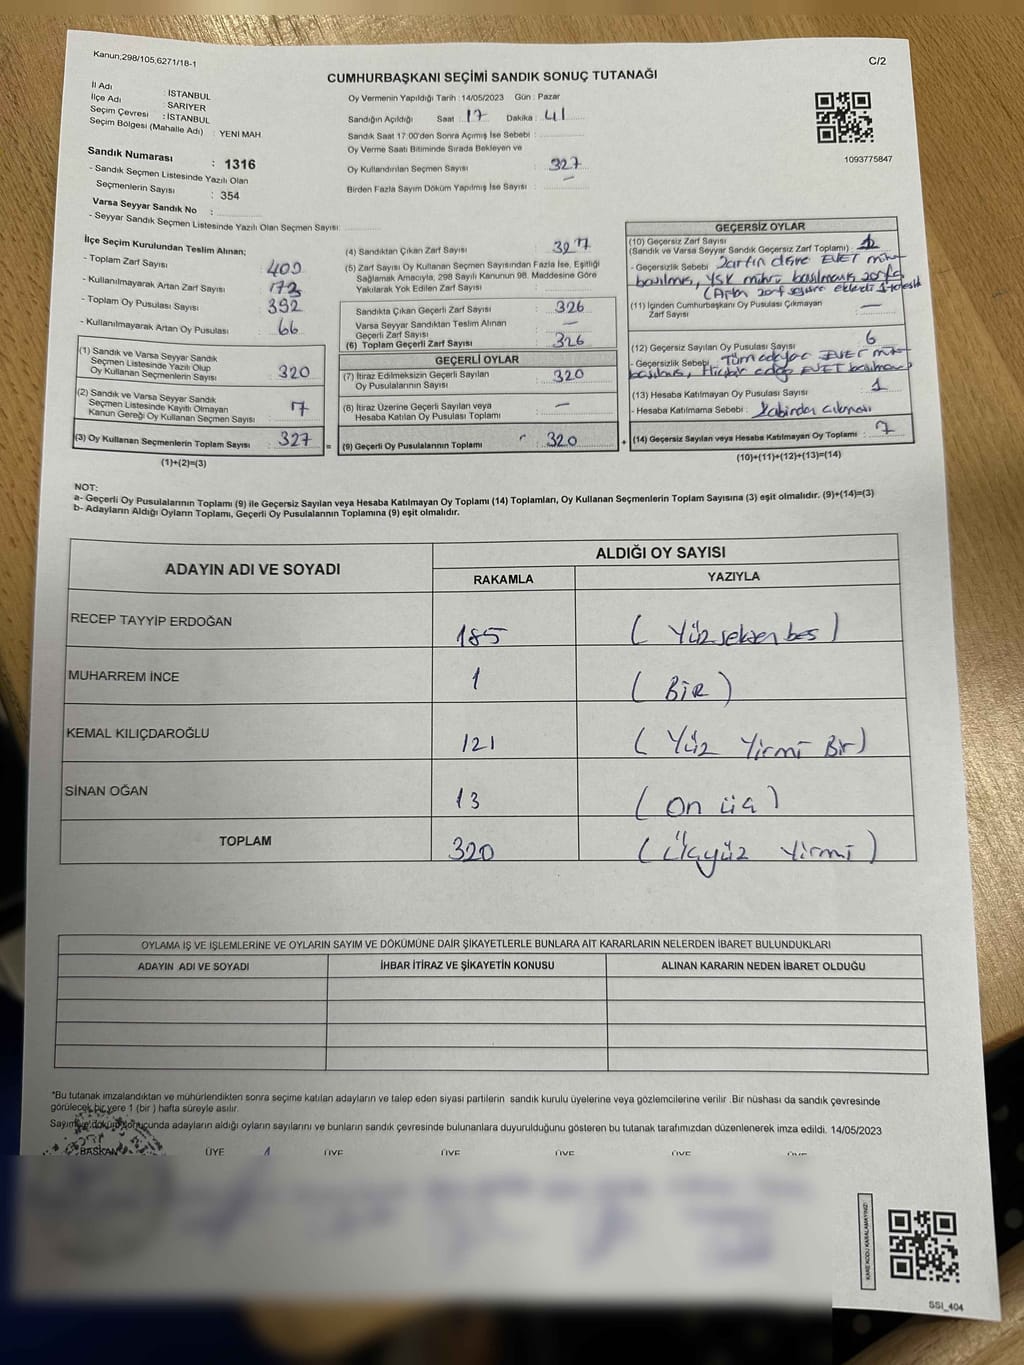 Kanun;298/105,6271/18-1
C/2
CUMHURBAŞKANI SEÇİMİ SANDIK SONUÇ TUTANAĞI
İl Adı : İSTANBUL
İlçe Adı : SARIYER
Seçim Çevresi : İSTANBUL
Seçim Bölgesi (Mahalle Adı) : YENİ MAH.
Sandık Numarası : 1316
- Sandık Seçmen Listesinde Yazılı Olan
Seçmenlerin Sayısı : 354
Varsa Seyyar Sandık No :
- Seyyar Sandık Seçmen Listesinde Yazılı Olan Seçmen Sayısı:
Oy Vermenin Yapıldığı Tarih : 14/05/2023 Gün : Pazar
Sandığın Açıldığı Saat : 17 Dakika : 41
Sandık Saat 17:00'den Sonra Açımış İse Sebebi :
Oy Verme Saati Bitiminde Sırada Bekleyen ve
Oy Kullandırılan Seçmen Sayısı : 327
Birden Fazla Sayım Döküm Yapılmış İse Sayısı : —
1093775847
İlçe Seçim Kurulundan Teslim Alınan;
- Toplam Zarf Sayısı : 400
- Kullanılmayarak Artan Zarf Sayısı : 173
- Toplam Oy Pusulası Sayısı : 392
- Kullanılmayarak Artan Oy Pusulası : 66
(1) Sandık ve Varsa Seyyar Sandık
Seçmen Listesinde Yazılı Olup
Oy Kullanan Seçmenlerin Sayısı : 320
(2) Sandık ve Varsa Seyyar Sandık
Seçmen Listesinde Kayıtlı Olmayan
Kanun Gereği Oy Kullanan Seçmen Sayısı : 7
(3) Oy Kullanan Seçmenlerin Toplam Sayısı : 327
(1)+(2)=(3)
(4) Sandıktan Çıkan Zarf Sayısı : 327
(5) Zarf Sayısı Oy Kullanan Seçmen Sayısından Fazla İse, Eşitliği
Sağlamak Amacıyla, 298 Sayılı Kanunun 98. Maddesine Göre
Yakılarak Yok Edilen Zarf Sayısı :
Sandıkta Çıkan Geçerli Zarf Sayısı : 326
Varsa Seyyar Sandıktan Teslim Alınan
Geçerli Zarf Sayısı : —
(6) Toplam Geçerli Zarf Sayısı : 326
GEÇERLİ OYLAR
(7) İtiraz Edilmeksizin Geçerli Sayılan
Oy Pusulasının Sayısı : 320
(8) İtiraz Üzerine Geçerli Sayılan veya
Hesaba Katılan Oy Pusulası Toplamı : —
(9) Geçerli Oy Pusulalarının Toplamı : 320
GEÇERSİZ OYLAR
(10) Geçersiz Zarf Sayısı
(Sandık ve Varsa Seyyar Sandık Geçersiz Zarf Toplamı) : 1
- Geçersizlik Sebebi : Zarfın dışına EVET mührü
basılmış, YSK mührü basılmamış zarfla
(Artan zarf sayısına eklendi
(11) İçinden Cumhurbaşkanı Oy Pusulası Çıkmayan
Zarf Sayısı : —
(12) Geçersiz Sayılan Oy Pusulası Sayısı : 6
- Geçersizlik Sebebi : Tüm adaylar EVET mührü
basılmış, Hiçbir aday EVET basılmamış
(13) Hesaba Katılmayan Oy Pusulası Sayısı : 1
- Hesaba Katılmama Sebebi : Kabinden çıkması
(14) Geçersiz Sayılan veya Hesaba Katılmayan Oy Toplamı : 7
(10)+(11)+(12)+(13)=(14)
NOT:
a- Geçerli Oy Pusulalarının Toplamı (9) ile Geçersiz Sayılan veya Hesaba Katılmayan Oy Toplamı (14) Toplamları, Oy Kullanan Seçmenlerin Toplam Sayısına (3) eşit olmalıdır. (9)+(14)=(3)
b- Adayların Aldığı Oyların Toplamı, Geçerli Oy Pusulalarının Toplamına (9) eşit olmalıdır.
ADAYIN ADI VE SOYADI
ALDIĞI OY SAYISI
RAKAMLA YAZIYLA
RECEP TAYYİP ERDOĞAN 185 (Yüzseksenbeş)
MUHARREM İNCE 1 (BİR)
KEMAL KILIÇDAROĞLU 121 (Yüz Yirmi Bir)
SİNAN OĞAN 13 (On üç)
TOPLAM 320 (Üçyüz Yirmi)
OYLAMA İŞ VE İŞLEMLERİNE VE OYLARIN SAYIM VE DÖKÜMÜNE DAİR ŞİKAYETLERLE BUNLARA AİT KARARLARIN NELERDEN İBARET BULUNDUKLARI
ADAYIN ADI VE SOYADI İHBAR İTİRAZ VE ŞİKAYETİN KONUSU ALINAN KARARIN NEDEN İBARET OLDUĞU
*Bu tutanak imzalandıktan ve mühürlendikten sonra seçime katılan adayların ve talep eden siyasi partilerin sandık kurulu üyelerine veya gözlemcilerine verilir .Bir nüshası da sandık çevresinde
görülecek bir yere 1 (bir ) hafta süreyle asılır.
Sayım ve döküm sonucunda adayların aldığı oyların sayılarını ve bunların sandık çevresinde bulunanlara duyurulduğunu gösteren bu tutanak tarafımızdan düzenlenerek imza edildi. 14/05/2023
BAŞKAN ÜYE ÜYE ÜYE ÜYE ÜYE ÜYE
KARE KODU KARALAMAYINIZ!
SSI_404